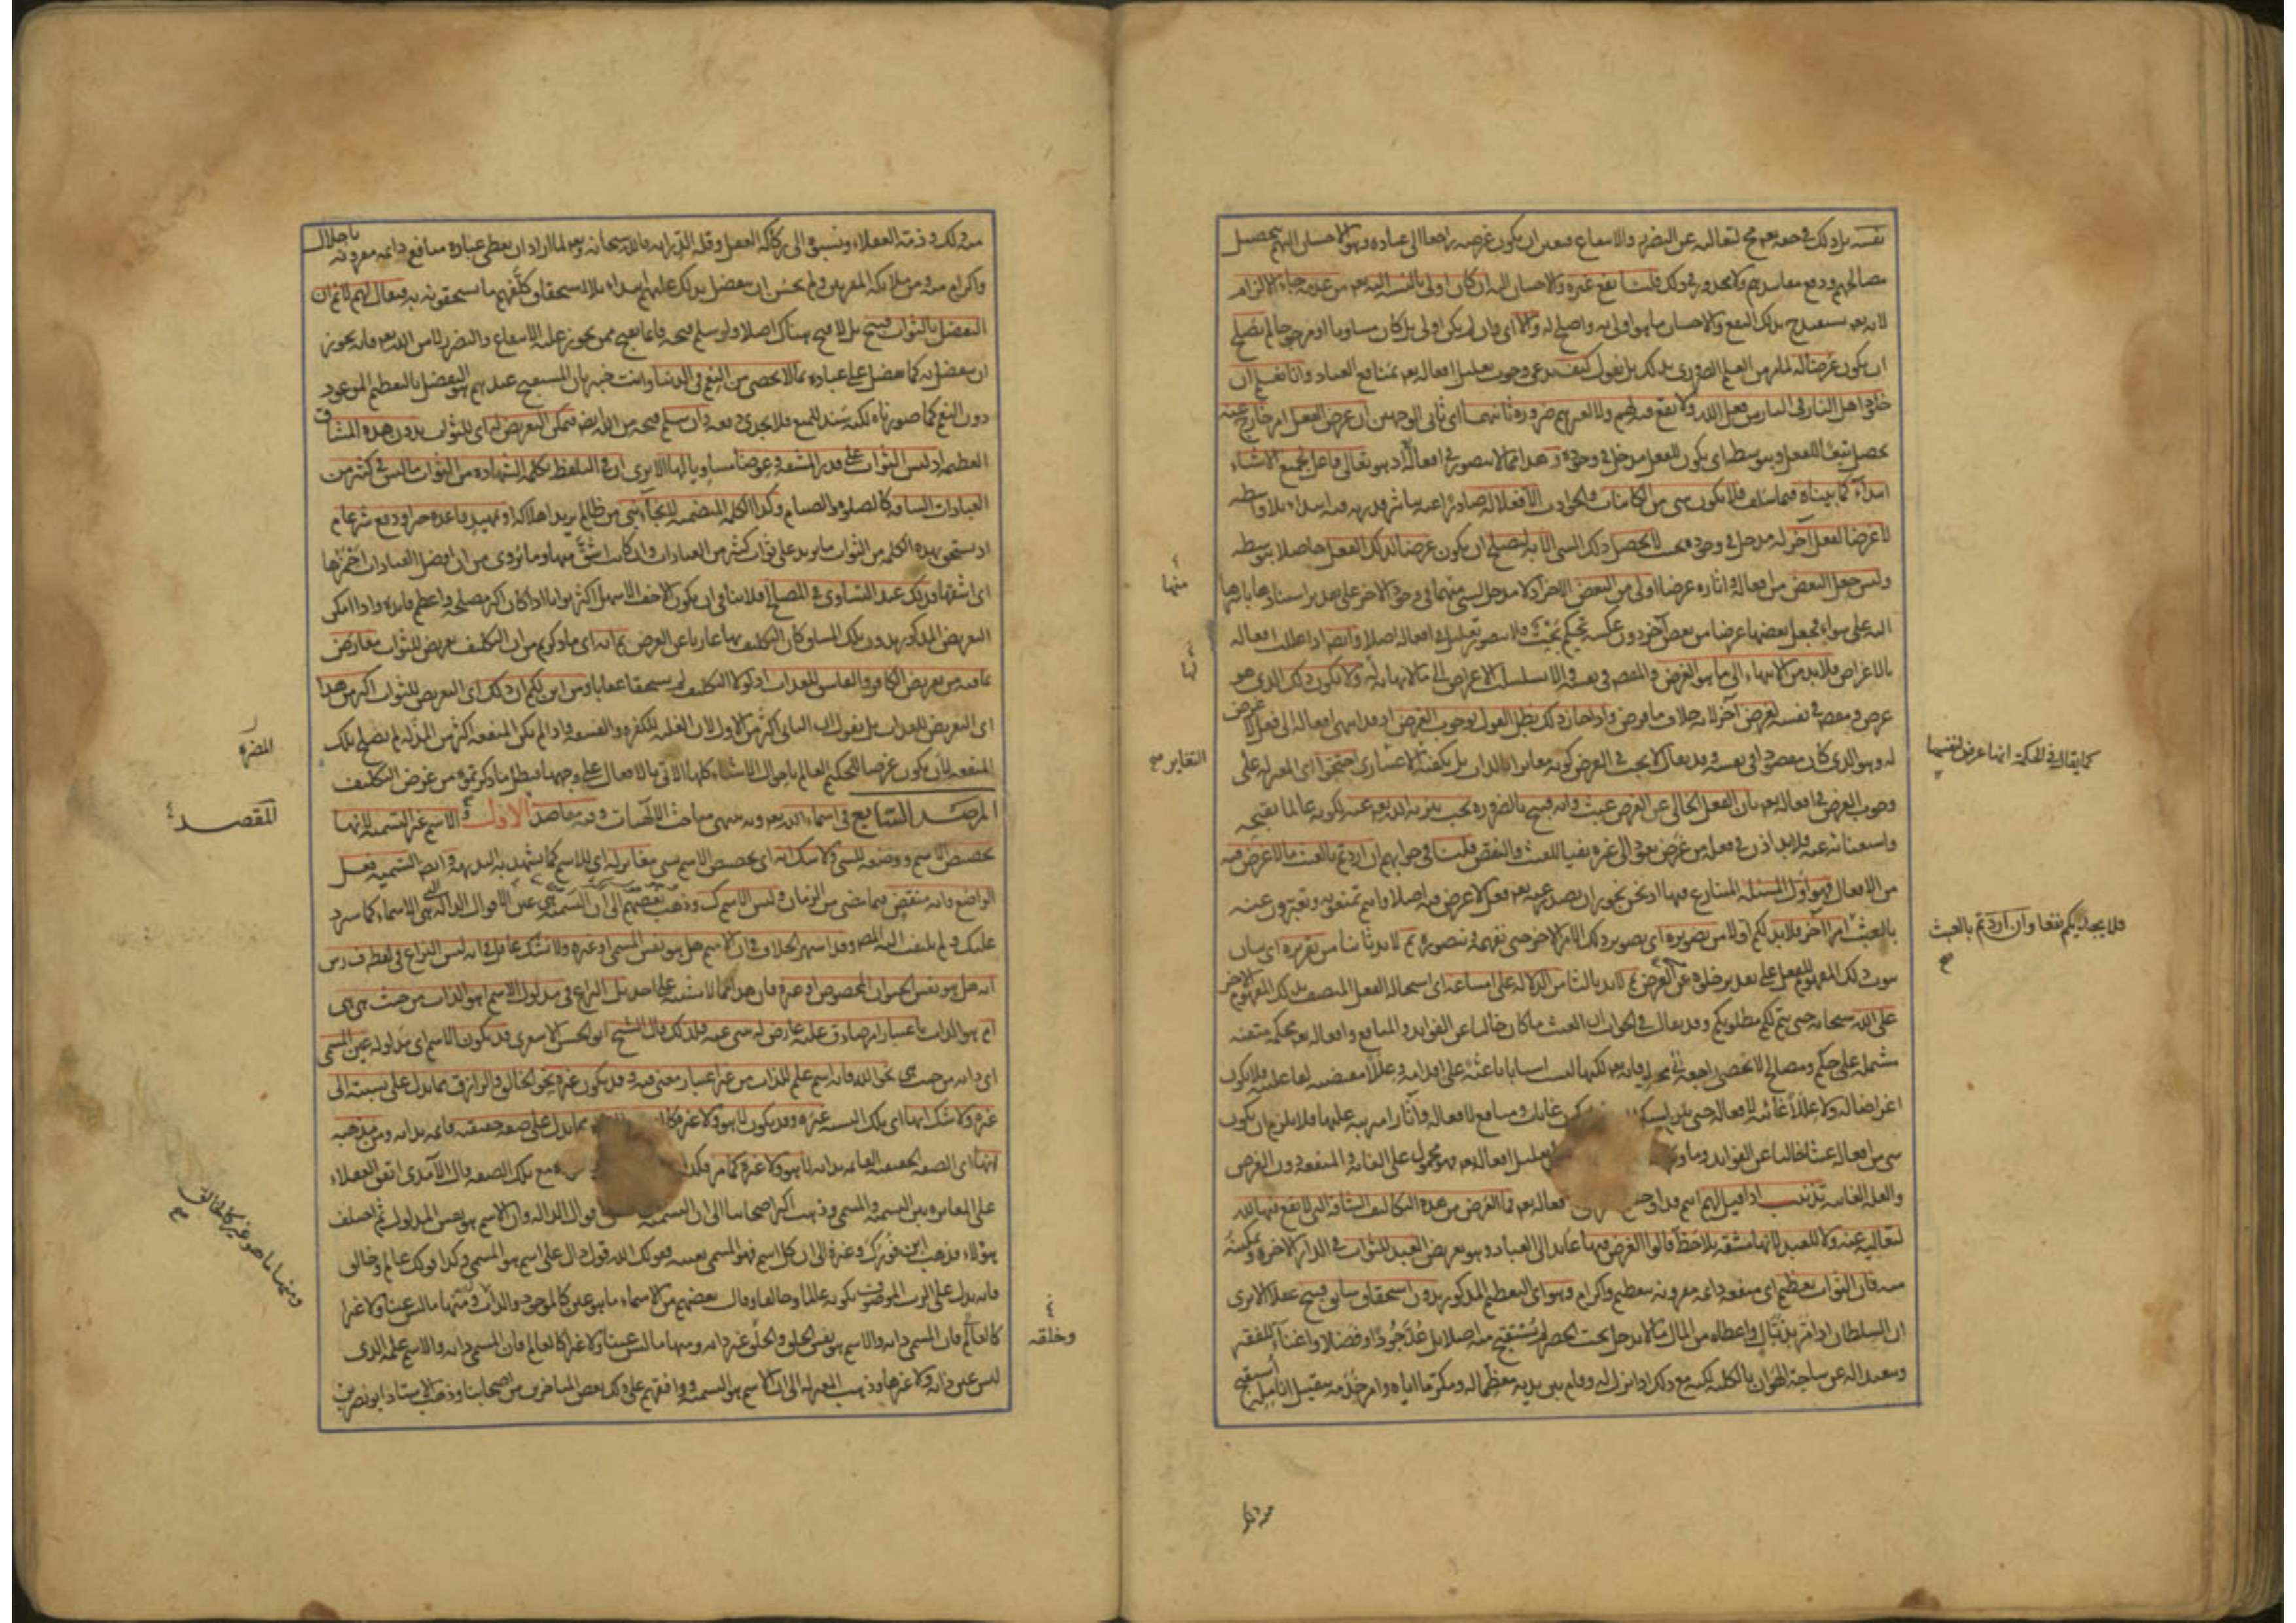 نفسه بل ذلك في حقه تعم محال لتعاليه عن التضرر والانتفاع فتعين ان يكون غرضه راجعا الى عباده وهو الاحسان اليهم بتحصيل
مصالحهم ودفع مفاسدهم ولا محذور في ذلك قلنا نفع غيره والاحسان اليه ان كان اولى بالنسبة اليه تعم من عدمه جاء الالزام
لانه تعم يستفيد ح بذلك النفع والاحسان ما هو اولى به واصلح له والا اى وان لم يكن اولى بل كان مساويا او مرجوحا لم يصلح
ان يكون غرضا له لما مر من العلم الضروري بذلك بل نقول كيف يدعى وجوب تعليل افعاله تعم بمنافع العباد وانا نعلم ان
خلود اهل النار في النار من فعل الله ولا نفع فيه لهم ولا لغيرهم ضرورة ثانيهما اى ثاني الوجهين ان غرض الفعل امر خارج عنه
يحصل تبعا للفعل وبتوسطه اى يكون للفعل مدخل في وجوده وهذا مما لا يتصور في افعاله اذ هو تعالى فاعل لجميع الاشياء
ابتداء كما بيناه فيما سلف فلا يكون شى من الكائنات والحوادث الا فعلا له صادرا عنه بتاثير قدرته فيه ابتداء بلا واسطه
لا غرضا لفعل آخر له مدخل في وجوده بحيث لا يحصل ذلك الشى الا به ليصلح ان يكون غرضا لذلك الفعل حاصلا بتوسطه
وليس جعل البعض من افعاله وآثاره غرضا اولى من البعض الاخر اذ لا مدخل لشى منهما في وجود الاخر على تقدير استنادها باسرها
اليه على سواء فجعل بعضها غرضا من بعض آخر دون عكسه تحكم بحت فلا يتصور تعليل في افعاله اصلا وايضا اذا عللت افعاله
بالاغراض فلا بد من الانتهاء الى ما هو الغرض والمقصود في نفسه والا تسلسلت الاغراض الى ما لا نهاية له ولا يكون ذلك الذى هو
غرض ومقصود في نفسه لغرض آخر لانه خلاف ما فرض واذا جاز ذلك بطل القول بوجوب الغرض اذ قد انتهى افعاله الى فعل لا غرض
له وهو الذى كان مقصودا في نفسه وقد يقال لا يجب في الغرض كونه مغايرا بالذات بل يكفيه الاعتبارى احتجوا اى المعتزله على
وجوب الغرض في افعاله تعم بان الفعل الخالى عن الغرض عبث وانه قبيح بالضروره يجب تنزيه الله تعم عنه لكونه عالما بقبحه
واستغنائه عنه فلا بد اذن في فعله من غرض يعود الى غيره نفيا للعبث والنقص قلنا في جوابهم ان اردتم بالعبث ما لا غرض فيه
من الافعال فهو اول المسئله المتنازع فيها اذ نحن نجوز ان يصدر عنه تعم فعل لا غرض فيه اصلا وانتم تمنعونه وتعبرون عنه
بالعبث امرا آخر فلا بد لكم اولا من تصويره اى تصوير ذلك الامر الاخر حتى نفهمه ونتصوره ثم لا بد ثانيا من تقريره اى بيان
ثبوت ذلك المفهوم للفعل على تقدير خلوه عن الغرض ثم لا بد ثالثا من الدلاله على امتناعه اى استحالة الفعل المتصف بذلك المفهوم الاخر
على الله سبحانه حتى يتم لكم مطلوبكم وقد يقال في الجواب ان العبث ما كان خاليا عن الفوايد والمنافع وافعاله تعم محكمة متقنه
مشتمله على حكم ومصالح لا تحصى راجعة الى مخلوقاته تعم لكنها ليست اسبابا باعثة على اقدامه وعللا مقتضيه لفاعليته فلا يكون
اغراضا له ولا عللا غائيه لافعاله حتى يلزم استكماله غايات ومنافع لافعاله وآثارا مترتبه عليها فلا يلزم ان يكون
شى من افعاله عبثا خاليا عن الفوايد وما ورد لعليل افعاله تعم فهو محمول على الغايه والمنفعه دون الغرض
والعلة الغائيه تذنيب اذا قيل لهم انتم قد اوجبتم افعاله تعم فما الغرض من هذه التكاليف الشاقه التى لا نفع فيها لله
لتعاليه عنه ولا للعبد لانها مشقه بلا حظ قالوا الغرض فيها عايد الى العباد وهو تعريض العبد للثواب في الدار الاخرة وتمكينه
منه فان الثواب تعظيم اى منفعه دائمه مقرونه بتعظيم واكرام وهو اى التعظيم المذكور بدون استحقاق سابق قبيح عقلا الا ترى
ان السلطان اذا مر بزبال واعطاه من المال ما لا يدخل تحت الحصر لم يستقبح منه اصلا بل عد جودا وفضلا واغناء للفقير
وتبعيدا له عن ساحة الهوان بالكليه لكنه مع ذلك اذا نزل له وقام بين يديه معظما له ومكرما اياه وامر خدمه بتقبيل انامله استقبح
منها
لها
التغاير صح
كما يقال في الحكمة انها غرض لنفسها
فلا يجديكم نفعا وان اردتم بالعبث
صح
منه ذلك
منه ذلك وذمته العقلاء ونسبوه الى ركاكة العقل وقلة الدراية فالله سبحانه وتعم لما اراد ان يعطى عباده منافع دائمه مقرونه باجلال
واكرام منه ومن ملائكته المقربين ولم يحسن ان يتفضل بذلك عليهم ابتداء بلا استحقاق كلفهم ما يستحقونه به فيقال لهم لا نم ان
التفضل بالثواب قبيح بل لا قبح هناك اصلا ولو سلم قبحه فانما يقبح ممن يجوز عليه الانتفاع والتضرر لا من الله تعم فانه يجوز
ان يتفضل به كما تفضل على عباده بما لا يحصى من النعم في الدنيا وانت خبير بان المستقبح عندهم هو التفضل بالتعظيم الموعود
دون النعم كما صورناه لكنه سند للمنع فلا يجدى دفعه وان سلم قبحه من الله ايضا فيمكن التعريض له اى للثواب بدون هذه المشاق
العظيمه اذ ليس الثواب على قدر المشقه وعوضا مساويا لها الا يرى ان في التلفظ بكلمة الشهاده من الثواب ما ليس في كثير من
العبادات الشاقه كالصلوة والصيام وكذا الكلمة المتضمنه لانجاء نبى من ظالم يريد اهلاكه او تمهيد قاعدة خير او دفع شر عام
اذ يستحق بهذه الكلمه من الثواب ما يزيد على ثواب كثير من العبادات وان كانت اشق منها وما يروى من ان افضل العبادات احمزها
اى اشقها فذلك عند التساوى في المصالح فلا ينافي ان يكون الاخف الاسهل اكثر ثوابا اذا كان اكثر مصلحه واعظم فايده واذا امكن
التعريض المذكور بدون تلك المشاق كان التكليف بها عاريا عن الغرض ثم انه اى ما ذكرتم من ان التكليف تعريض للثواب معارض
بما فيه من تعريض الكافر والفاسق للعذاب اذ لولا التكليف لم يستحقا عقابا ومن اين لكم ان ذلك اى التعريض للثواب اكثر من هذا
اى التعريض للعذاب بل نقول ان الثانى اكثر من الاول لان الغلبه للكفرة والفسقه واذا لم يكن المنفعه اكثر من المذله لم يصلح تلك
المنفعه لان يكون غرضا للحكيم العالم باحوال الاشياء كلها الاتى بالافعال على وجهها فبطل ما ذكرتموه من غرض التكليف
المرصد السابع في اسماء الله تعم وبه ينتهى مباحث الالهيات وفيه مقاصد الاول الاسم غير التسميه لانها
تخصيص الاسم ووضعه للشى ولا شك انه اى تخصيص الاسم بشى مغاير له اى للاسم كما يشهد به البديهه وايضا التسميه فعل
الواضع وانه منقض فيما مضى من الزمان وليس الاسم كذلك وذهب بعضهم الى ان التسميه هى عين الاقوال الدالة التى هى الاسماء كما سيرد
عليك ولم يلتفت اليه المصنف وقد اشتهر الخلاف في ان الاسم هل هو نفس المسمى او غيره ولا يشك عاقل في انه ليس النزاع في لفظة ف رس
انه هل هو نفس الحيوان المخصوص او غيره فان هذا مما لا يشتبه على احد بل النزاع في مدلول الاسم اهو الذات من حيث هى هى
ام هو الذات باعتبار امر صادق عليه عارض له ينبى عنه فلذلك قال الشيخ ابو الحسن الاشعرى قد يكون الاسم اى مدلوله عين المسمى
اى ذاته من حيث هى نحو الله فانه اسم علم للذات من غير اعتبار معنى فيه وقد يكون غيره نحو الخالق والرازق مما يدل على نسبته الى
غيره ولا شك انها اى تلك النسبه غيره وقد يكون لا هو ولا غيره مما يدل على صفه حقيقيه قائمه بذاته ومن مذهبه
انها اى الصفه الحقيقيه القائمه بذاته لا هو ولا غيره كما مر فكذا مع تلك الصفه قال الآمدى اتفق العقلاء
على المغايره بين التسميه والمسمى وذهب اكثر اصحابنا الى ان التسميه الاقوال الداله وان الاسم هو نفس المدلول ثم اختلف
هؤلاء فذهب ابن فورك وغيره الى ان كل اسم فهو المسمى بعينه فقولك الله قول دال على اسم هو المسمى وكذا قولك عالم وخالق
فانه يدل على الرب الموصوف بكونه عالما وخالقا وقال بعضهم من الاسماء ما هو عين كالموجود والذات ومنها ما ليس عينا ولا غيرا
كالعالم فان المسمى ذاته والاسم هو نفس الخلق والخلق غير ذاته ومنها ما ليس عينا ولا غيرا كالعالم فان المسمى ذاته والاسم علمه الذى
ليس عين ذاته ولا غيرها وذهب المعتزله الى ان الاسم هو التسميه ووافقهم على ذلك بعض المتاخرين من اصحابنا وذهب الاستاذ ابو نصر بن
المضرة
المقصد
ومنها ما هو غير كالخالق
صح
وخلقه